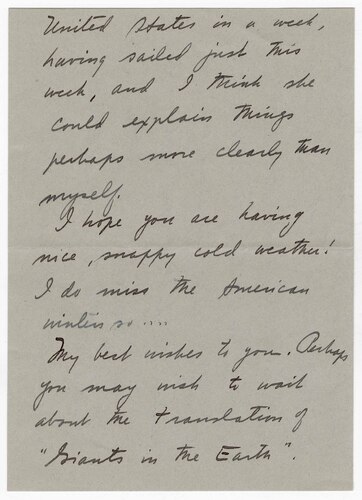 United States in a week,
having sailed just this
week, and I think she
could explain things
perhaps more clearly than
myself.
I hope you are having
nice, snappy cold weather!
I do miss the American
winters so....
My best wishes to you. Perhaps
you may wish to wait
about the translation of
"Giants in the Earth".